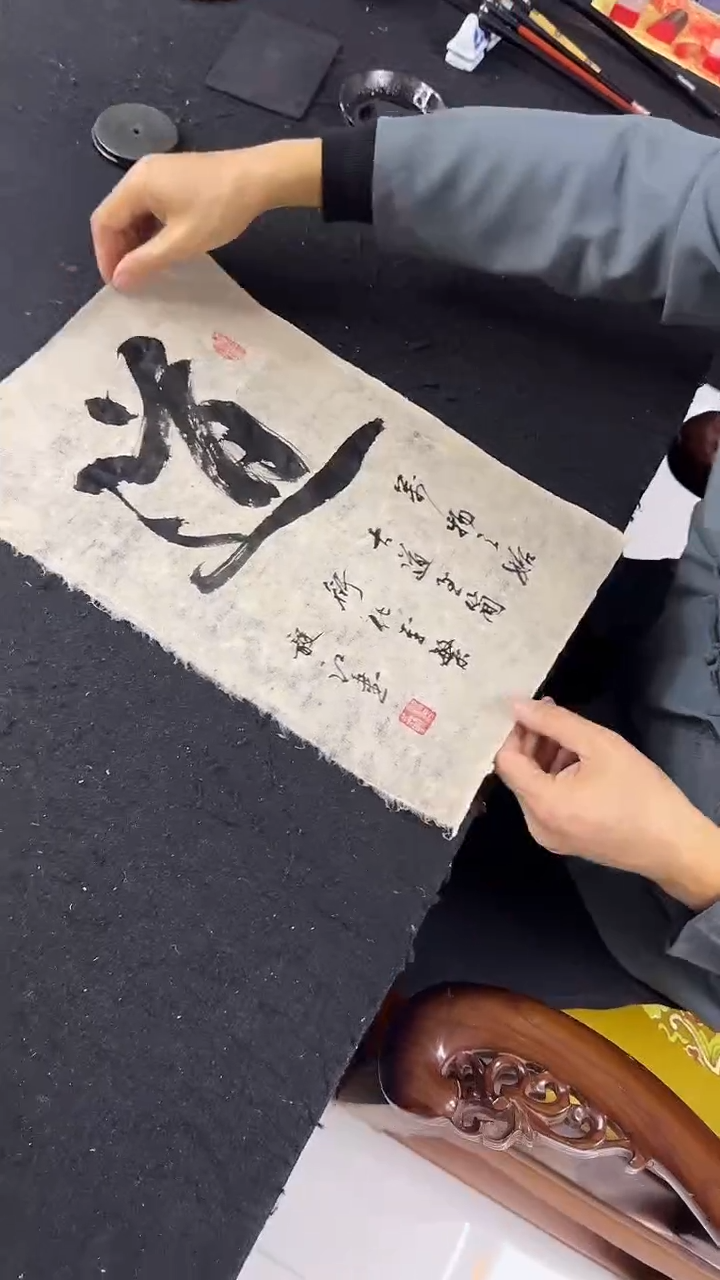 道
萬物之始
大道至简
衍化至繁